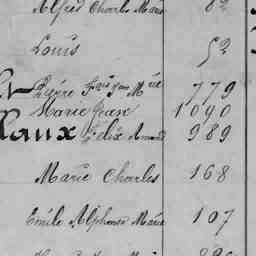 Alfred Charles Marie 82
Louis 52
Pierre Frois Marie 779
Marie Grase 1090
Raux Félix Amand 989
Marie Charles 168
Emile Alphonse Marie 107